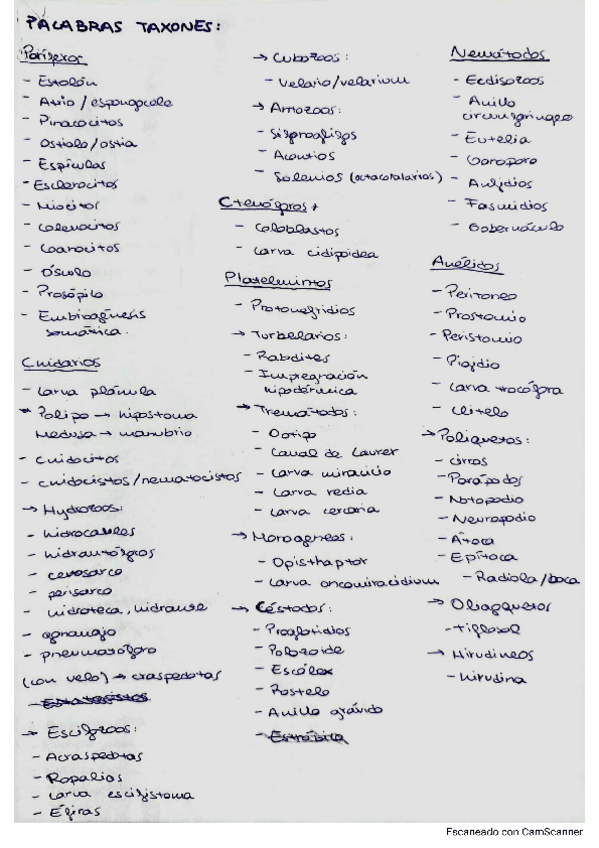 PALABRAS TAXONES:
Poríferos
- Estolón
- Atrio / espongocele
- Pinacocitos
- Ostiolo/ostia
- Espículas
- Esclerocitos
- Miocitos
- Colenocitos
- Coanocitos
- Ósculo
- Prosópilo
- Embriogénesis
somática.
Cnidarios
- Larva plánula
* Pólipo → hipostoma
Medusa → manubrio
- Cnidocitos
- cnidocistos/nematocistos
→ Hydrozoos:
- hidrocaules
- hidrantóforos
- cenosarco
- perisarco
- hidroteca, hidrante
- gonangio
- pneumatóforo
(con velo) → craspedotas
→ Escifozoos:
- Acraspedotas
- Ropalios
- Larva escifistoma
- Éfiras
→ Cubozoos:
- Velario/velarium
→ Antozoos:
- Sifonoglifos
- Acontios
- Solenios (octocoralarios)
Ctenóforos
- Coloblastos
- Larva cidipoidea
Platelmintos
- Protonefridios
→ Turbelarios:
- Rabdites
- Impregnación
hipodérmica
→ Trematodos:
- Ootipo
- Canal de Laurer
- Larva miracidio
- Larva redia
- Larva cercaria
→ Monogeneos:
- Opisthaptor
- Larva oncomiracidium
→ Céstodos:
- Proglotidios
- Escólex
- Rostelo
- Anillo grávido
- Estróbila
Nemátodos
- Ecdisozoos
- Anillo
circumfaríngeo
- Eutelia
- Gonoporo
- Anfidios
- Fasmidios
- Gobernáculo
Anélidos
- Peritoneo
- Prostomio
- Peristomio
- Pigidio
- Larva trocófora
- Clitelo
→ Poliquetos:
- cirros
- Parápodos
- Notopodio
- Neuropodio
- Átoca
- Epítoca
- Radiola/boca
→ Oligoquetos
- Tiflosol
→ Hirudíneos
- hirudina
Escaneado con CamScanner